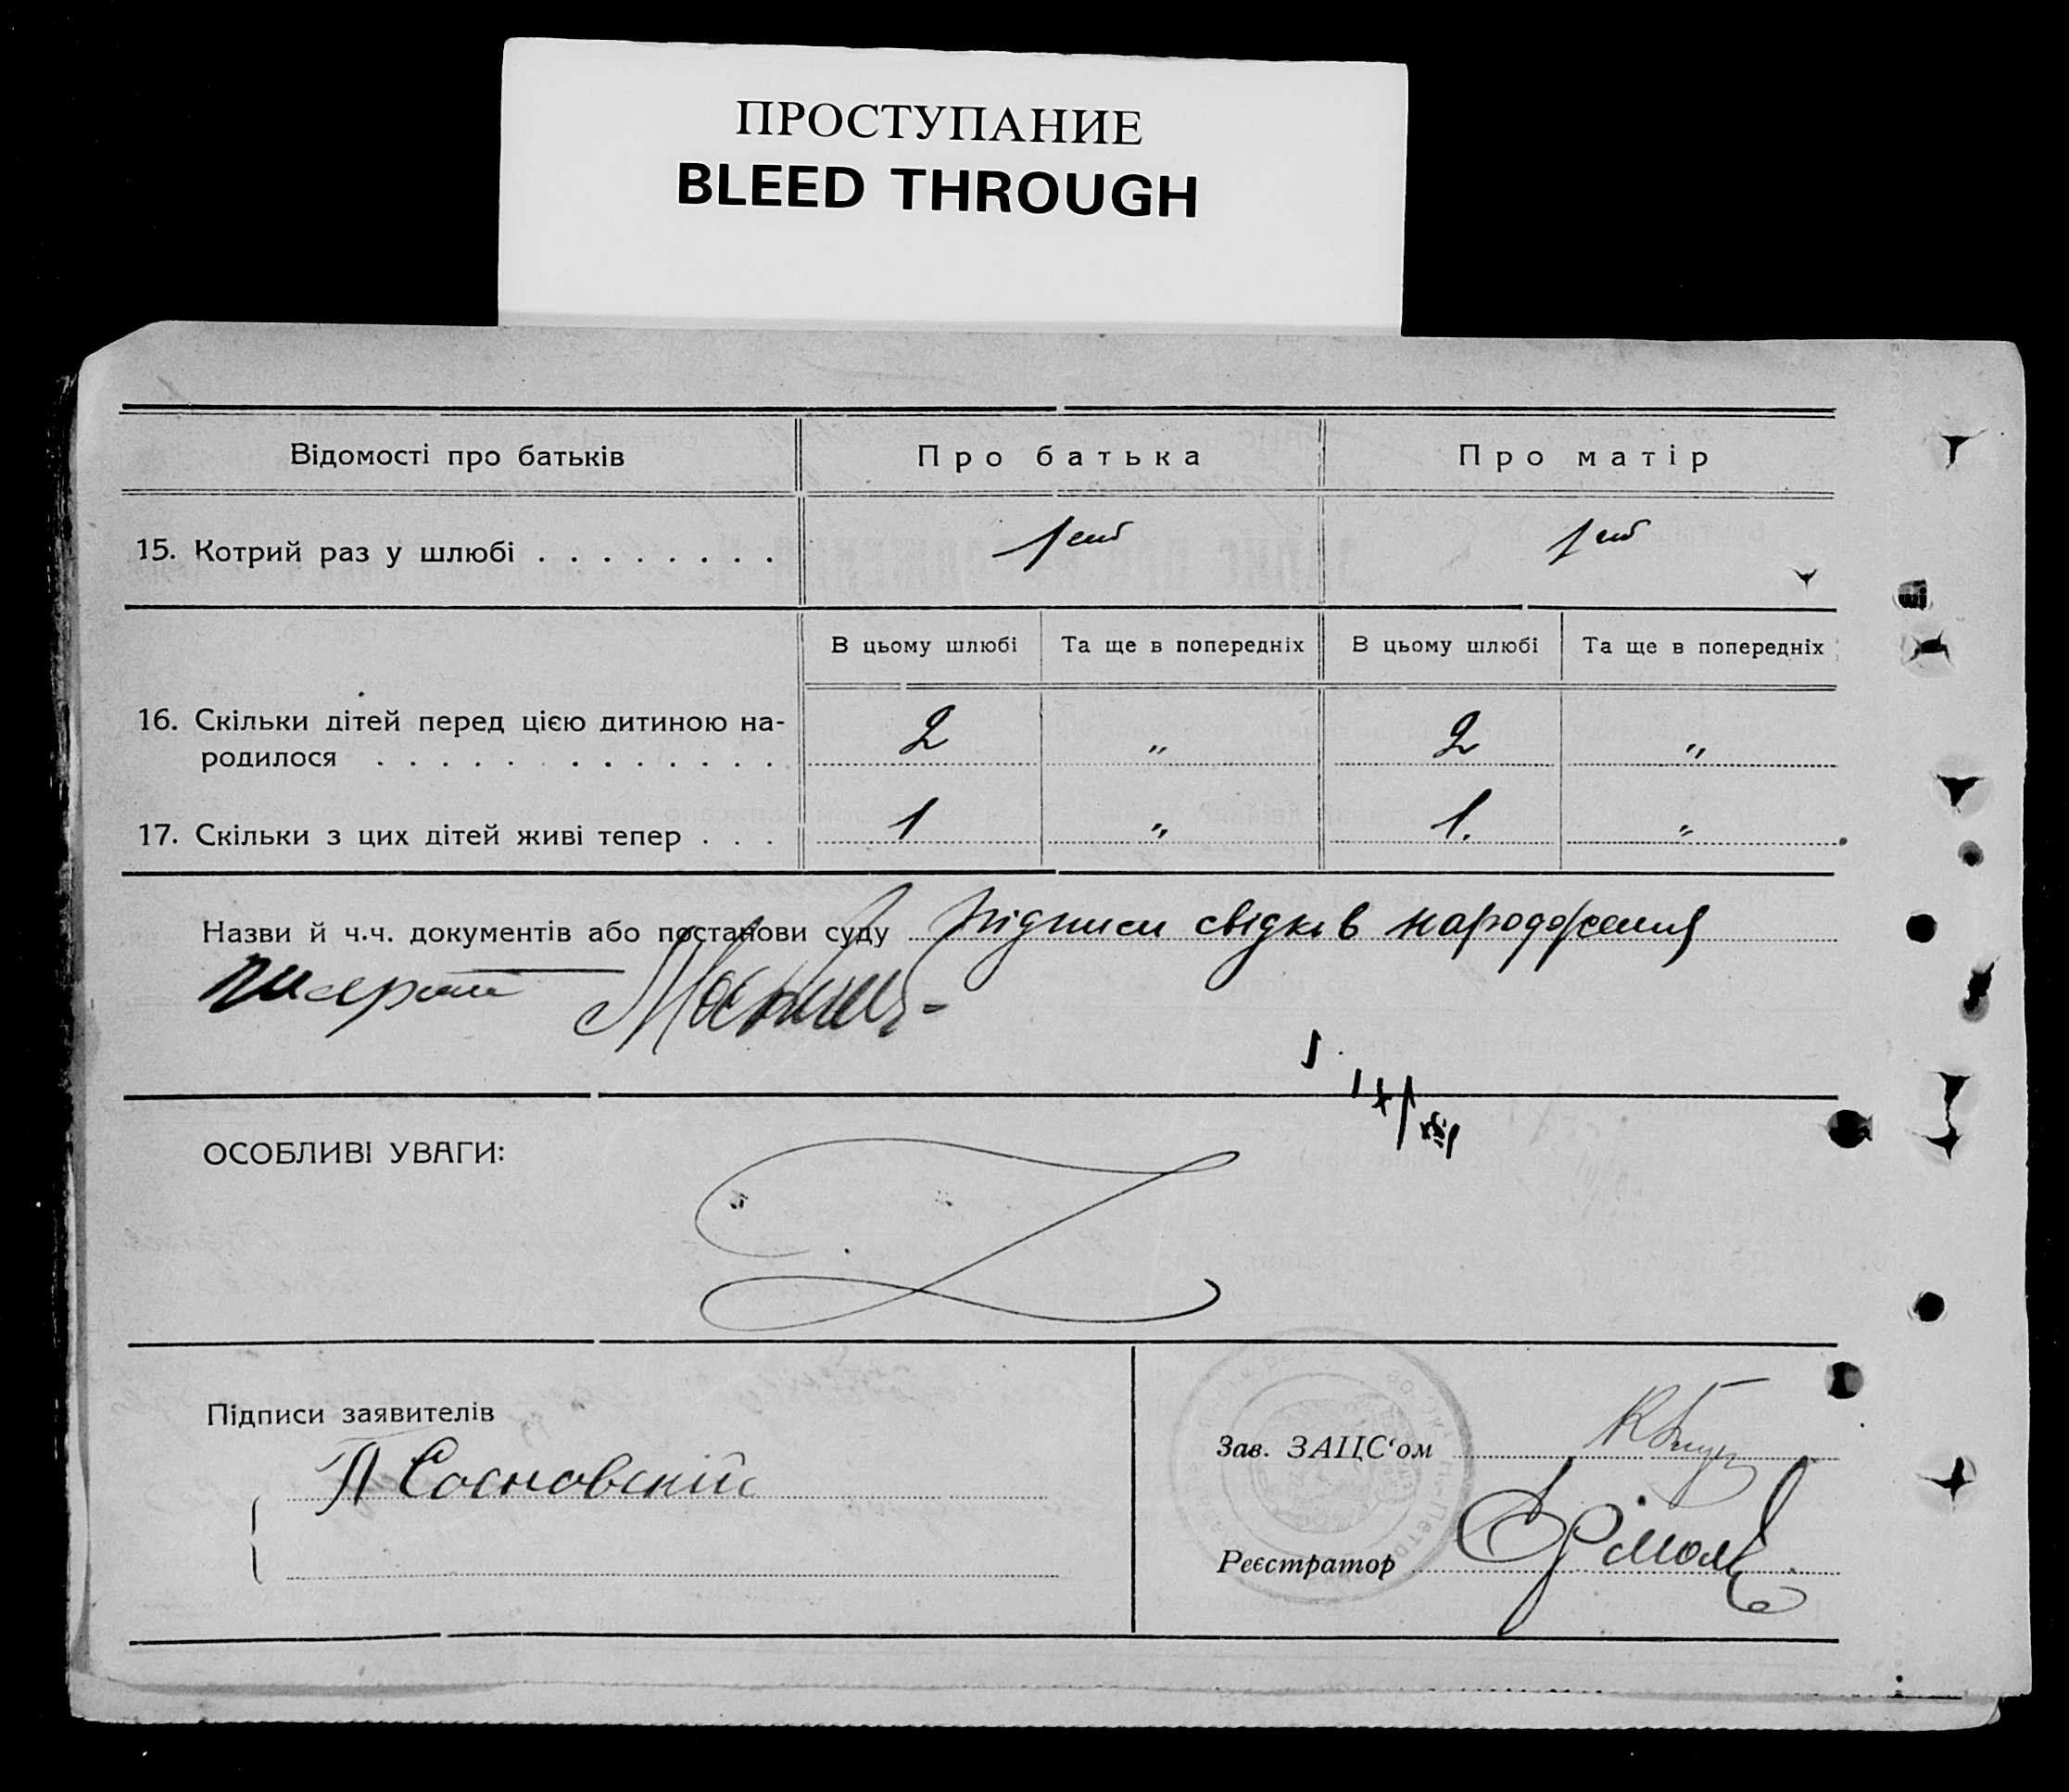 ПРОСТУПАНИЕ
BLEED THROUGH
Відомості про батьків Про батька Про матір
15. Котрий раз у шлюбі . . . . . . . . 1ий 1ий
В цьому шлюбі Та ще в попередніх В цьому шлюбі Та ще в попередніх
16. Скільки дітей перед цією дитиною на-
родилося . . . . . . . . . . . . . . 2 „ 2 „
17. Скільки з цих дітей живі тепер . . . 1 „ 1. „
Назви й ч.ч. документів або постанови суду підписи свідків народження
ОСОБЛИВІ УВАГИ:
Підписи заявителів
П Сосновскій
Зав. ЗАЦС‘ом
Реєстратор